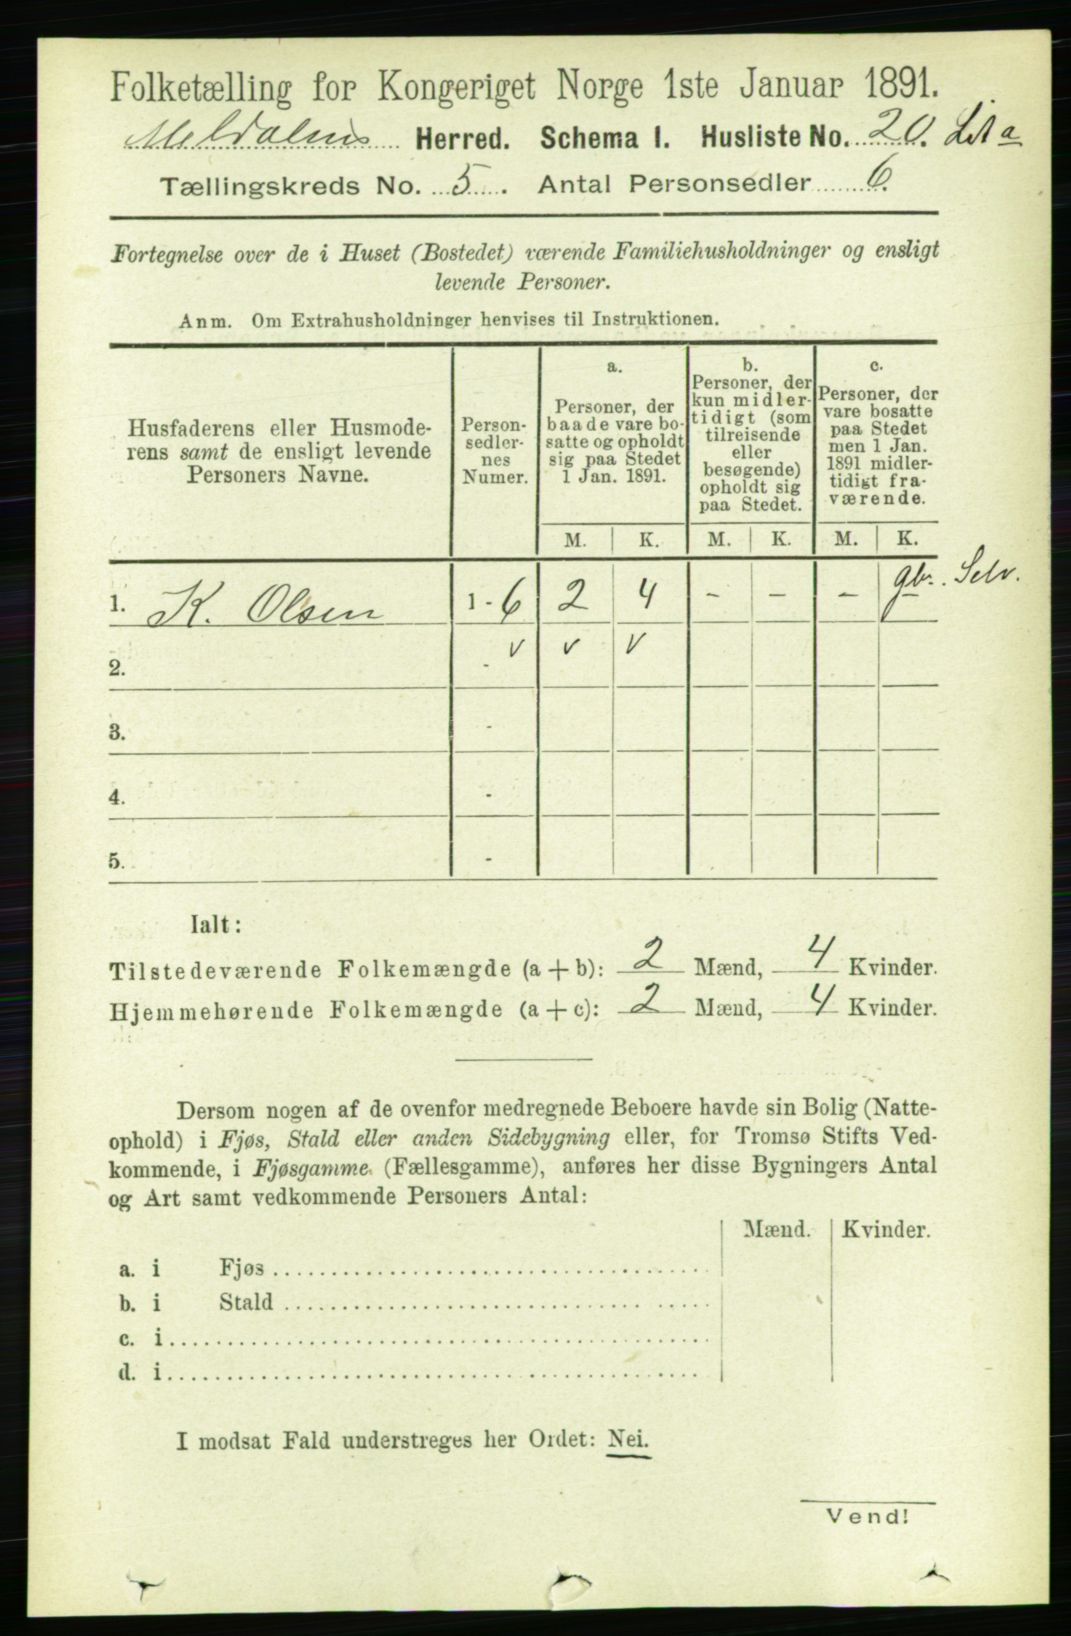 Folketælling for Kongeriget Norge 1ste Januar 1891.
Meldalens Herred. Schema I. Husliste No. 20. Lit a
Tællingskreds No. 5. Antal Personsedler 6.
Fortegnelse over de i Huset (Bostedet) værende Familiehusholdninger og ensligt
levende Personer.
Anm. Om Extrahusholdninger henvises til Instruktionen.
Husfaderens eller Husmode-
rens samt de ensligt levende
Personers Navne.
Person-
sedler-
nes
Numer.
a.
Personer, der
baade vare bo-
satte og opholdt
sig paa Stedet
1 Jan. 1891.
b.
Personer, der
kun midler-
tidigt (som
tilreisende
eller
besøgende)
opholdt sig
paa Stedet.
c.
Personer, der
vare bosatte
paa Stedet
men 1 Jan.
1891 midler-
tidigt fra-
værende.
M. K. M. K. M. K.
1. K. Olsen 1 - 6 2 4 - - - gbr. Selv.
2. - v v v
3. -
4. -
5. -
Ialt:
Tilstedeværende Folkemængde (a + b): 2 Mænd, 4 Kvinder.
Hjemmehørende Folkemængde (a + c): 2 Mænd, 4 Kvinder.
Dersom nogen af de ovenfor medregnede Beboere havde sin Bolig (Natte-
ophold) i Fjøs, Stald eller anden Sidebygning eller, for Tromsø Stifts Ved-
kommende, i Fjøsgamme (Fællesgamme), anføres her disse Bygningers Antal
og Art samt vedkommende Personers Antal:
Mænd. Kvinder.
a. i Fjøs
b. i Stald
c. i
d. i
I modsat Fald understreges her Ordet: Nei.
Vend!